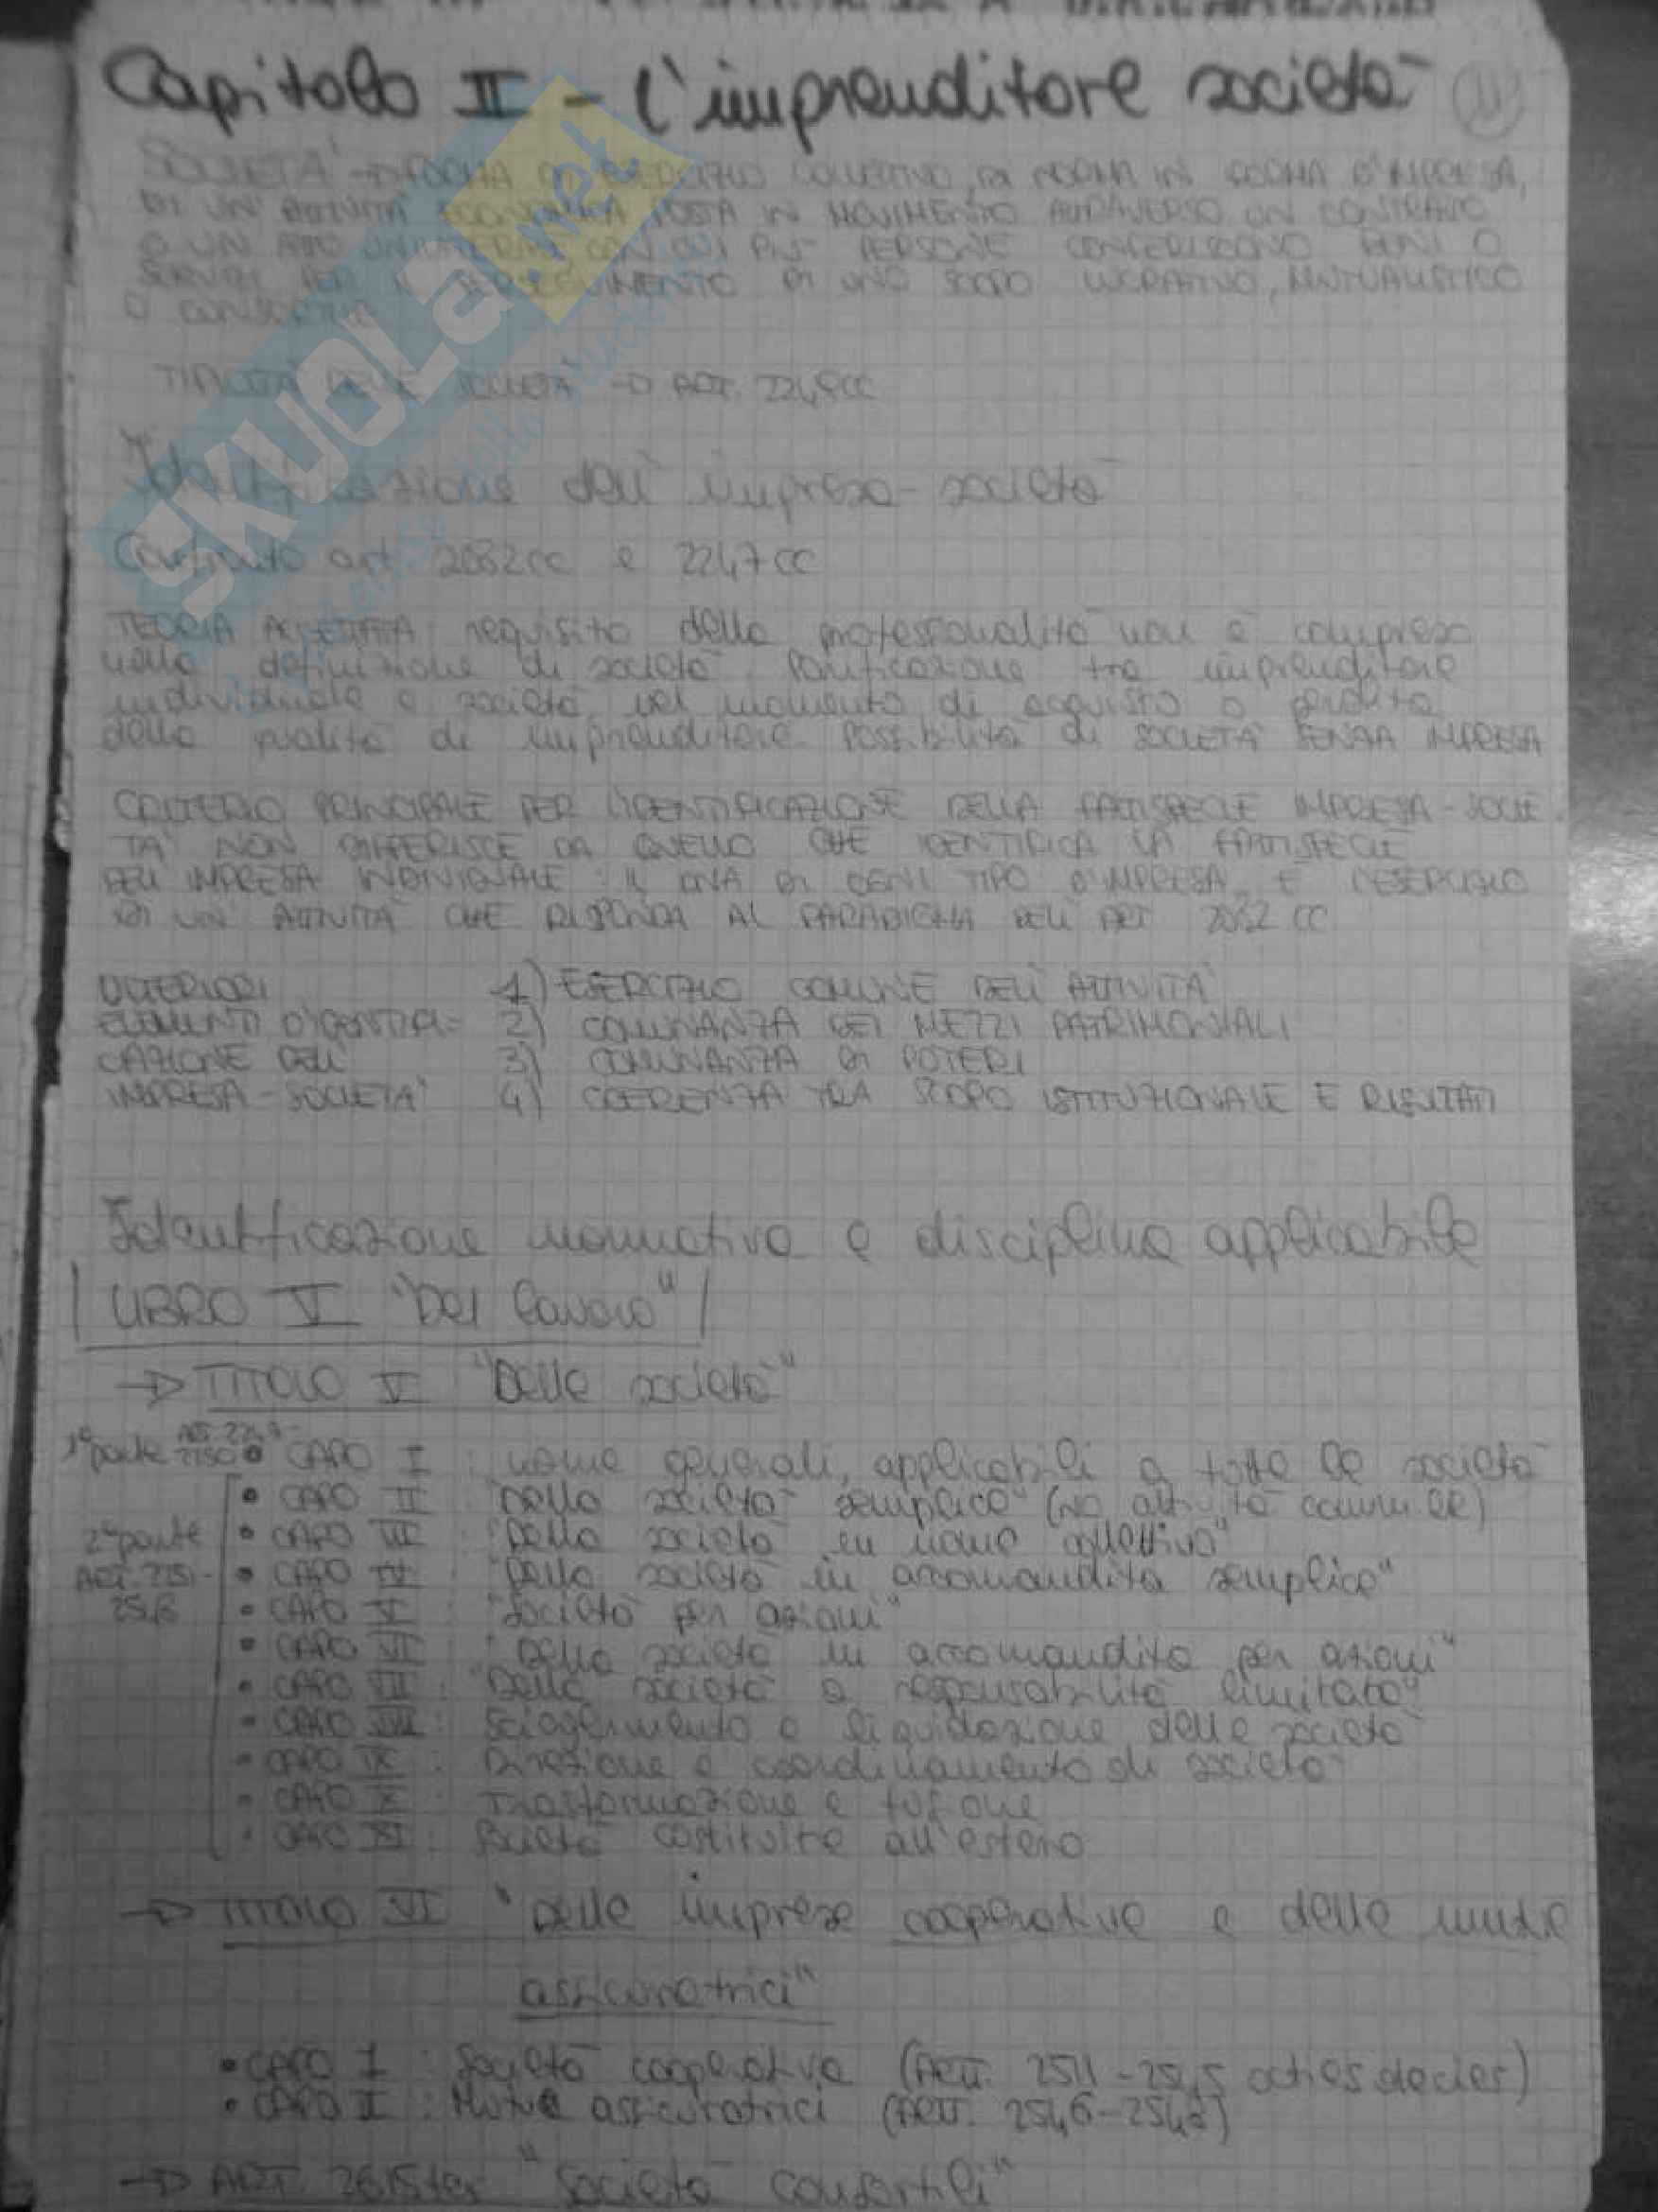 Capitolo III - L'imprenditore società
SOCIETÀ → FORMA DI ESERCIZIO COLLETTIVO, DI NORMA IN FORMA D'IMPRESA,
DI UN'ATTIVITÀ ECONOMICA POSTA IN MOVIMENTO ATTRAVERSO UN CONTRATTO
O UN ATTO UNILATERALE CON CUI PIÙ PERSONE CONFERISCONO BENI O
SERVIZI PER IL PERSEGUIMENTO DI UNO SCOPO LUCRATIVO, MUTUALISTICO
O CONSORTILE
TIPICITÀ DELLE SOCIETÀ → ART. 2249 CC
Identificazione dell'impresa-società
Confronto art. 2082 cc e 2247 cc
TEORIA ACCETTATA: requisito della professionalità non è compreso
nella definizione di società. Parificazione tra imprenditore
individuale e società nel momento di acquisto o perdita
della qualità di imprenditore. Possibilità di SOCIETÀ SENZA IMPRESA
CRITERIO PRINCIPALE PER L'IDENTIFICAZIONE DELLA FATTISPECIE IMPRESA-SOCIE
TÀ NON DIFFERISCE DA QUELLO CHE IDENTIFICA LA FATTISPECIE
DELL'IMPRESA INDIVIDUALE: IL DNA DI OGNI TIPO D'IMPRESA È L'ESERCIZIO
DI UN'ATTIVITÀ CHE RISPONDA AL PARADIGMA DELL'ART. 2082 CC
ULTERIORI 1) ESERCIZIO COMUNE DELL'ATTIVITÀ
ELEMENTI D'IDENTIFI- 2) COMUNANZA DEI MEZZI PATRIMONIALI
CAZIONE DELL' 3) COMUNANZA DI POTERI
IMPRESA-SOCIETÀ 4) COERENZA TRA SCOPO ISTITUZIONALE E RISULTATI
Identificazione normativa e disciplina applicabile
LIBRO V "Del lavoro"
→ TITOLO V "Delle società"
1ª parte ART. 2247-2250 • CAPO I: norme generali, applicabili a tutte le società
• CAPO II: "Della società semplice" (no attività comm.le)
2ª parte • CAPO III: "Della società in nome collettivo"
ART. 2251- • CAPO IV: "Della società in accomandita semplice"
2510 • CAPO V: "Società per azioni"
• CAPO VI: "Della società in accomandita per azioni"
• CAPO VII: "Della società a responsabilità limitata"
• CAPO VIII: Scioglimento e liquidazione delle società
• CAPO IX: Direzione e coordinamento di società
• CAPO X: Trasformazione e fusione
• CAPO XI: Società costituite all'estero
→ TITOLO VI "Delle imprese cooperative e delle mutue
assicuratrici"
• CAPO I: Società cooperative (ARTT. 2511-2545 octies decies)
• CAPO II: Mutue assicuratrici (ARTT. 2546-2548)
→ ART. 2615ter "Società consortili"
SKUOLA.net